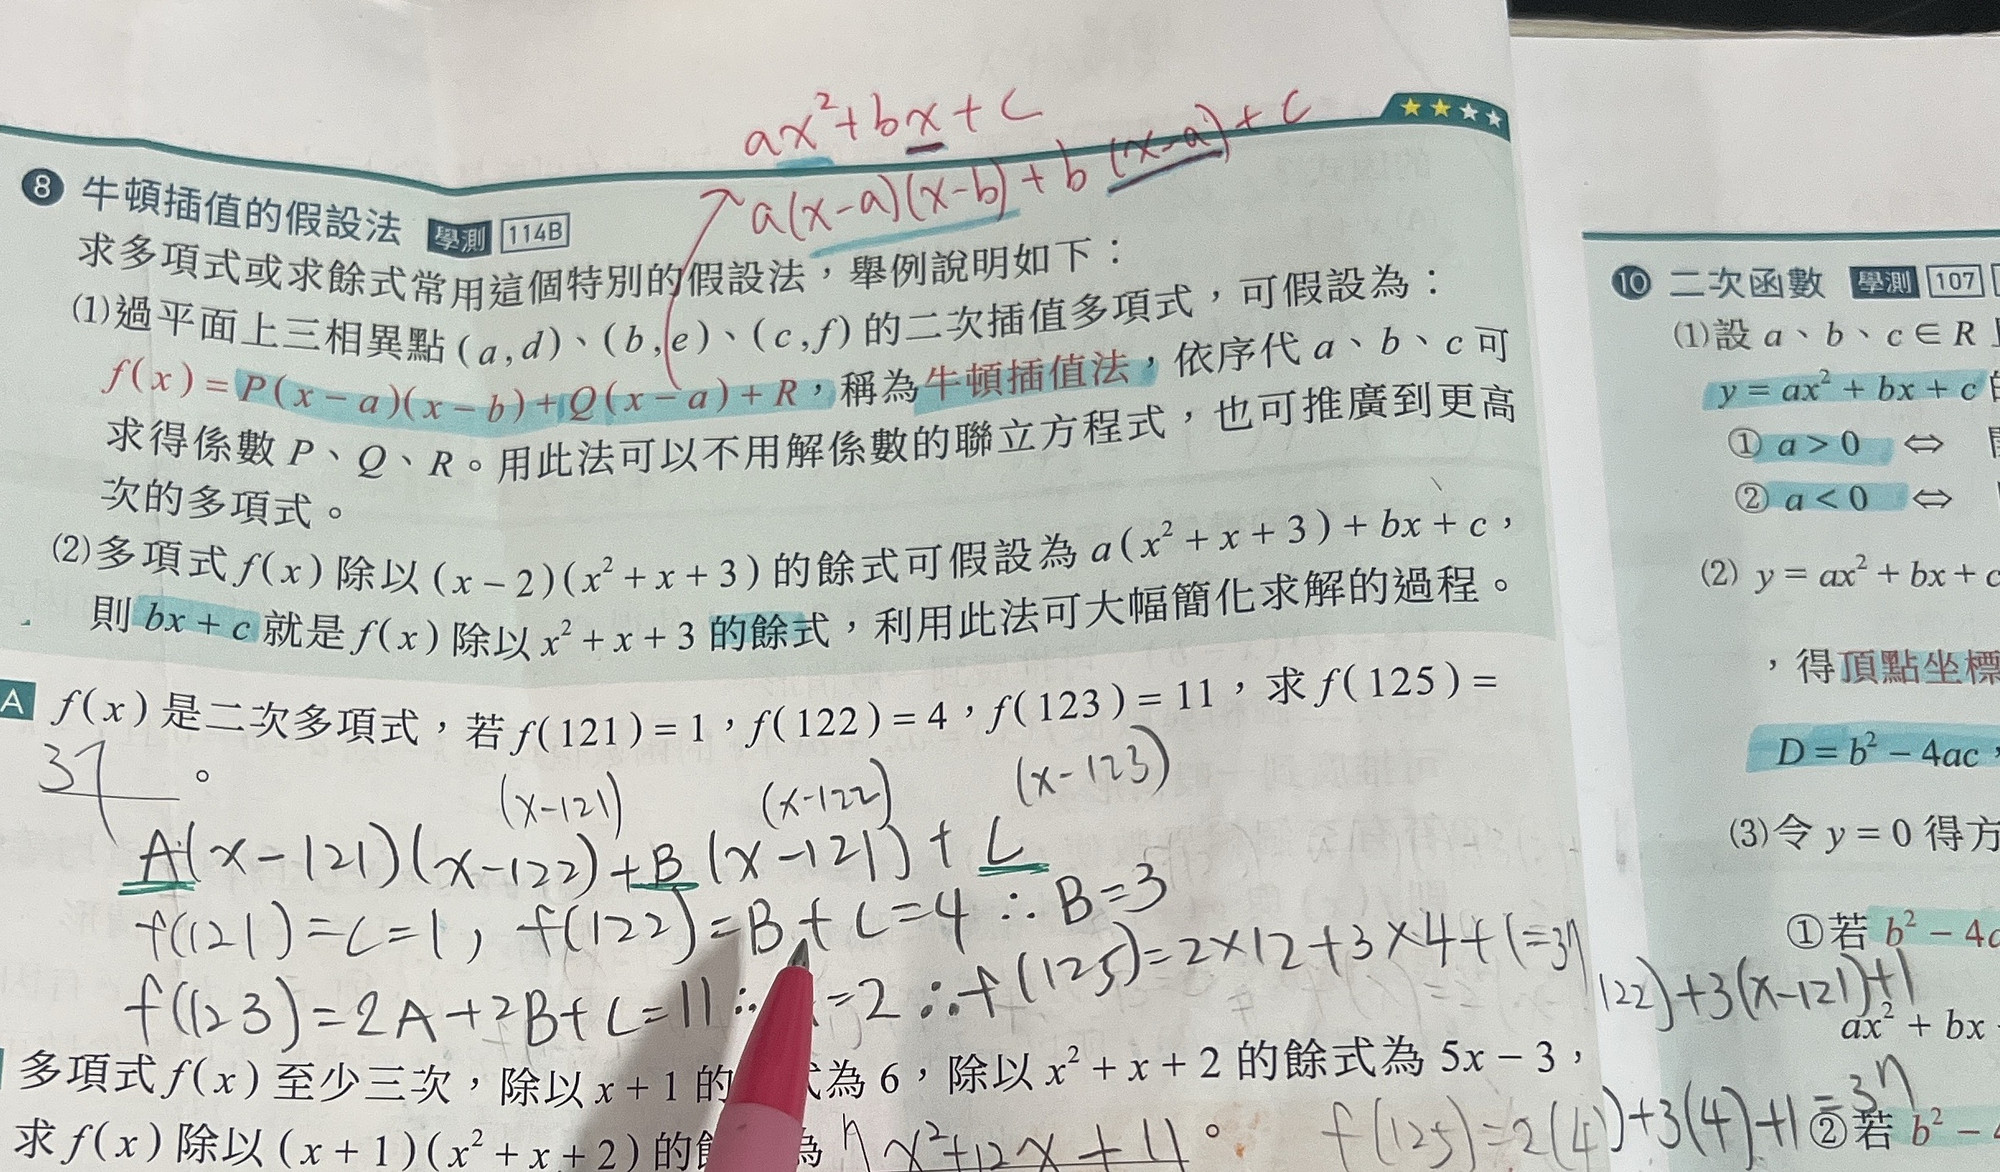 ax²+bx+c
a(x-a)(x-b)+b(x-a)+c
8 牛頓插值的假設法 學測 114B
求多項式或求餘式常用這個特別的假設法,舉例說明如下:
(1)過平面上三相異點(a,d)、(b,e)、(c,f)的二次插值多項式,可假設為:
f(x)=P(x-a)(x-b)+Q(x-a)+R,稱為牛頓插值法,依序代a、b、c可
求得係數P、Q、R。用此法可以不用解係數的聯立方程式,也可推廣到更高
次的多項式。
(2)多項式f(x)除以(x-2)(x²+x+3)的餘式可假設為a(x²+x+3)+bx+c,
則bx+c就是f(x)除以x²+x+3的餘式,利用此法可大幅簡化求解的過程。
A f(x)是二次多項式,若f(121)=1,f(122)=4,f(123)=11,求f(125)=
37。
(x-121) (x-122) (x-123)
A(x-121)(x-122)+B(x-121)+C
f(121)=C=1, f(122)=B+C=4 ∴B=3
f(123)=2A+2B+C=11 ∴ =2 ∴f(125)=2×12+3×4+1=37
多項式f(x)至少三次,除以x+1的 式為6,除以x²+x+2的餘式為5x-3,
求f(x)除以(x+1)(x²+x+2)的餘 為7x²+12x+11。
122)+3(x-121)+1
f(125)=2(4 )+3(4)+1=37
10 二次函數 學測 107
(1)設a、b、c∈R
y=ax²+bx+c
① a>0 ⇔
② a<0 ⇔
(2) y=ax²+bx+c
,得頂點坐標
D=b²-4ac,
(3)令y=0得方
①若b²-4c
ax²+bx
②若b²-4